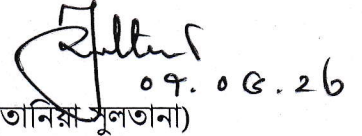 ০৭. ০৫. ২৬
তানিয়া সুলতানা)